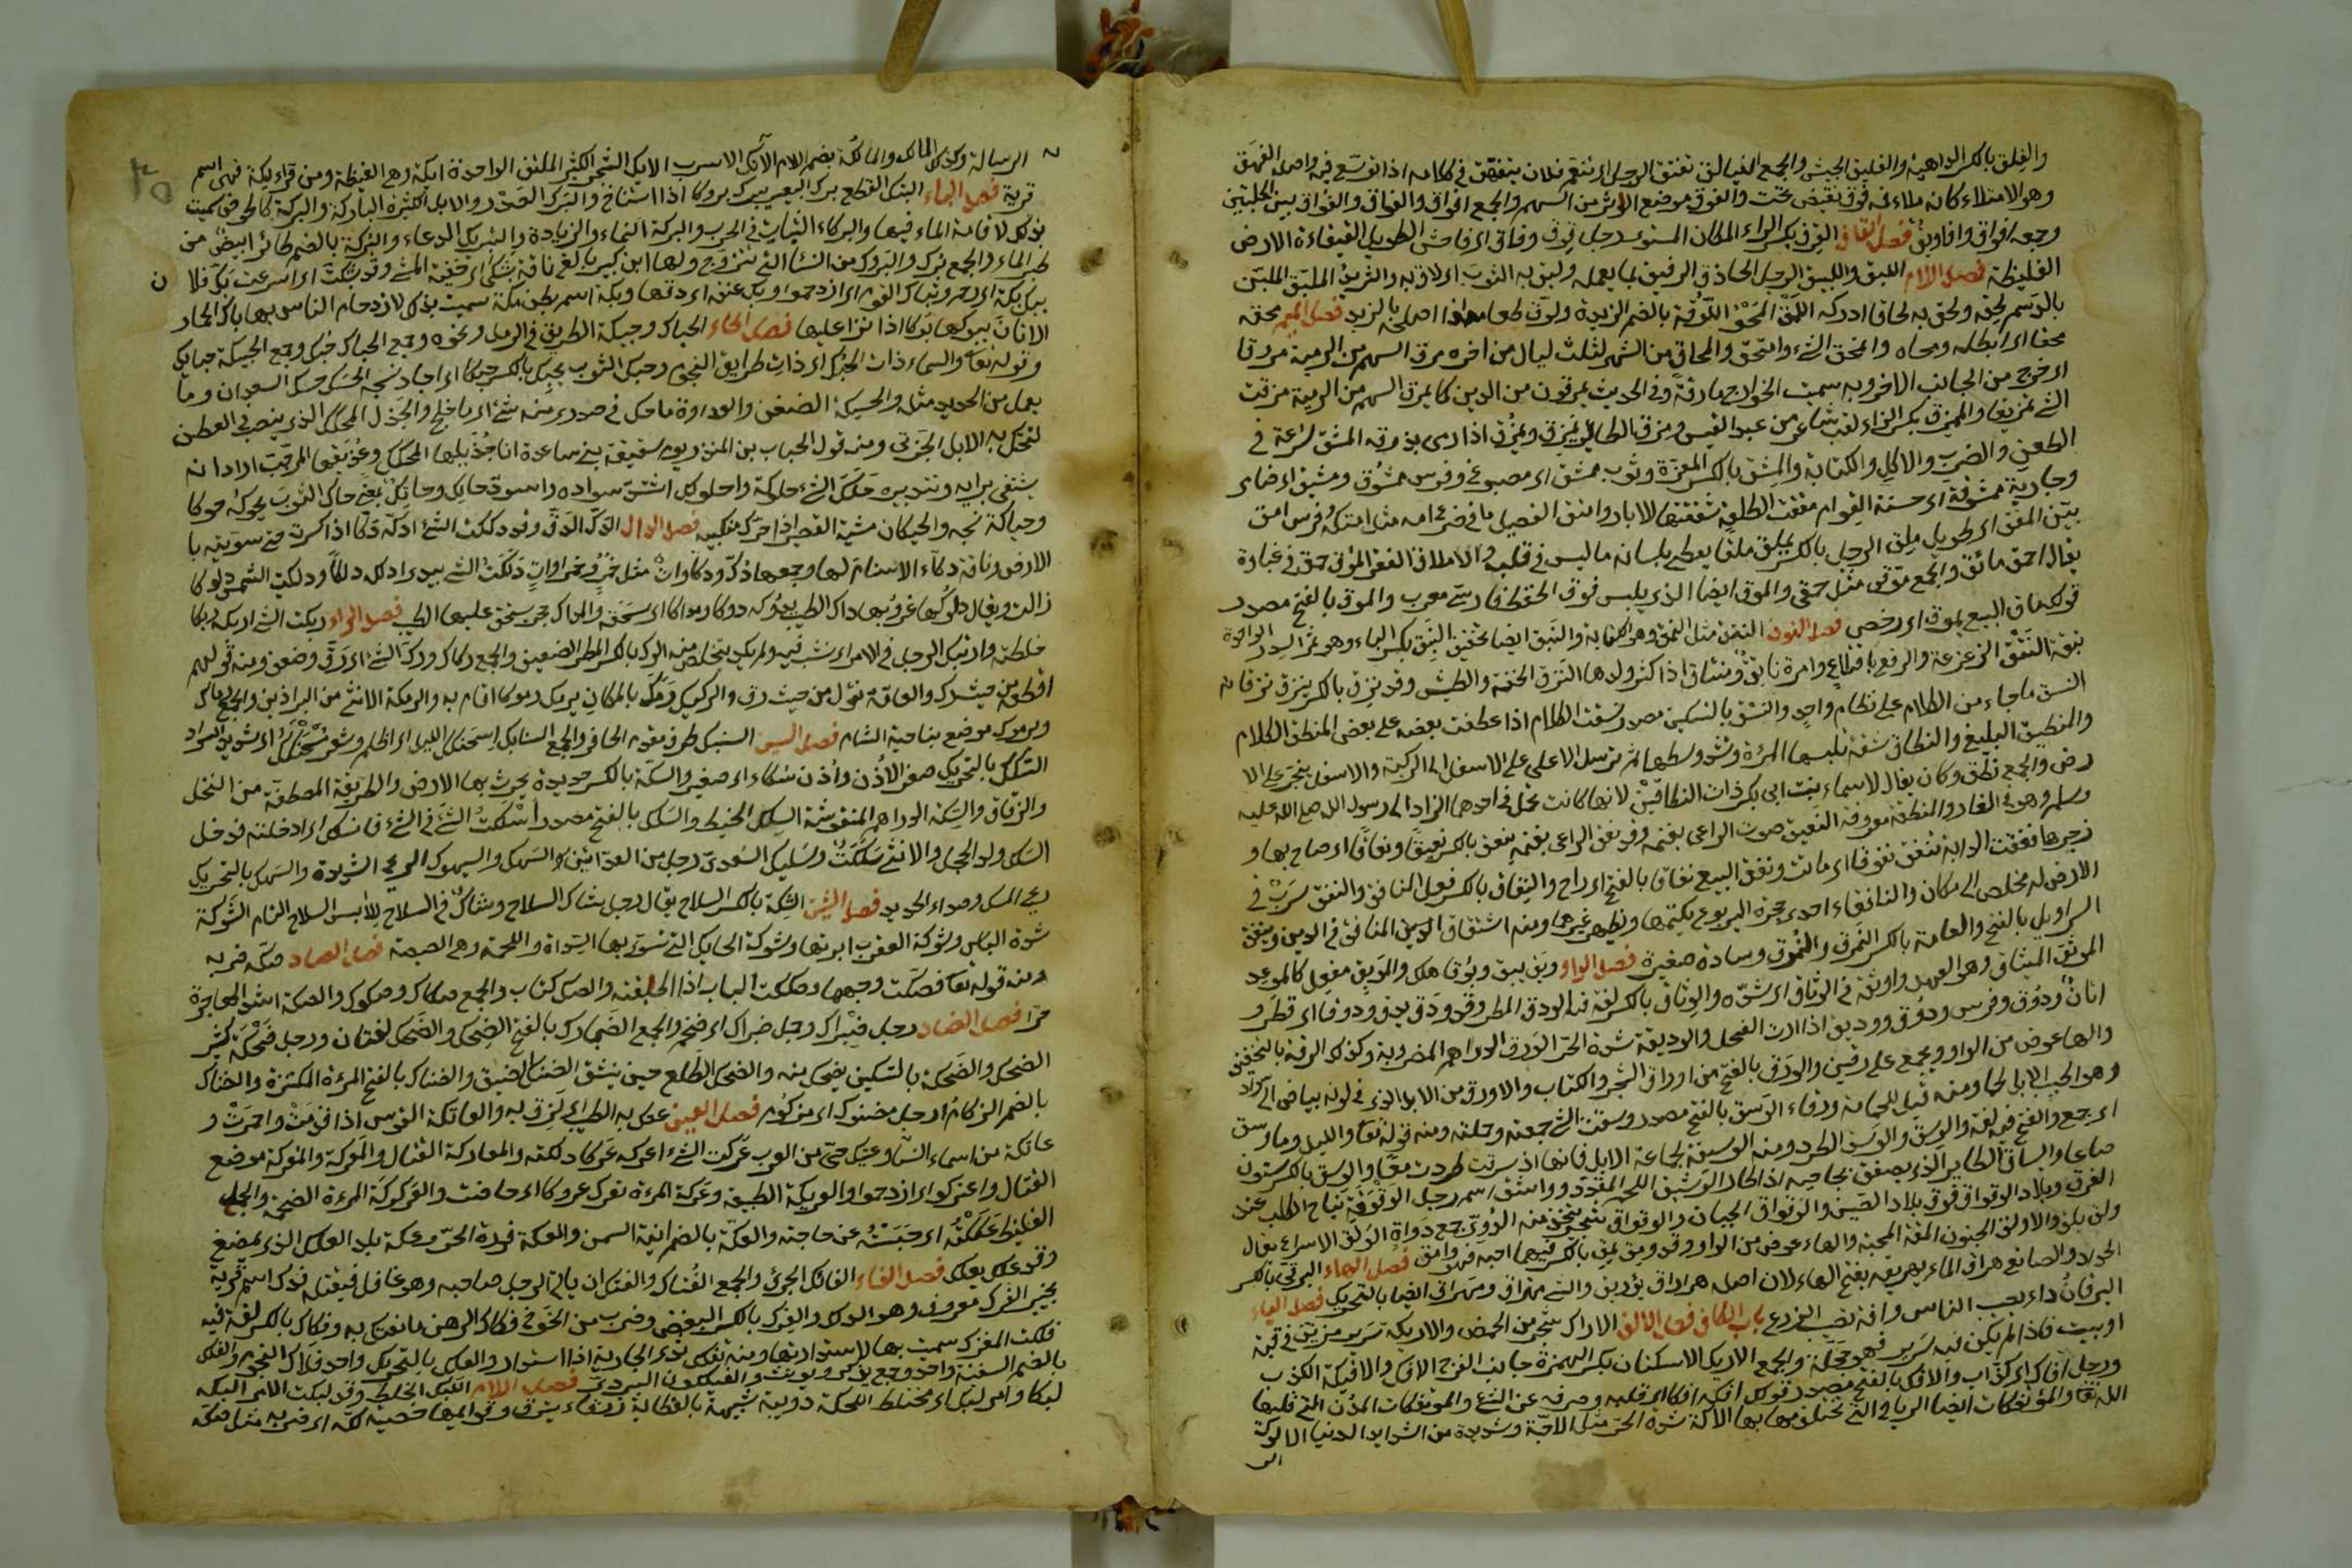 والفلق بالكسر الداهية والفيلق الجيش والجمع الفيالق تفنق الرجل اى تنعم فلان يتفيهق فى كلامه اذا توسع فيه واصله الفهق
وهو الامتلاء كانه ملاء به فوق نقيض تحت والفوق موضع الوتر من السهم والجمع افواق والفواق والفواق بين الحلبتين
وجمعه افواق وافاويق فصل القاف القرق بكسر الراء المكان المستوى رجل قوق وقاق اى فاحش الطويل القيقاءة الارض
الغليظة فصل اللام اللبق واللبيق الرجل الحاذق الرفيق بما يعمله ولبق به الثوب اى لاق به والثريد الملبق الملين
بالدسم لحقه ولحق به لحاقا ادركه اللمق المحو اللوقة بالضم الزبدة ولوق طعامه اذا اصلحه بالزبد فصل الميم محقه
محقا اى ابطله ومحاه وانمحق الشئ وامتحق والمحاق من الشهر لثلث ليال من اخره مرق السهم من الرمية مروقا
اى خرج من الجانب الاخر وبه سميت الخوارج مارقة وفى الحديث يمرقون من الدين كما يمرق السهم من الرمية مزقت
الشئ تمزيقا والممزق بكسر الزاء لقب شاعر من عبد القيس ومزق الطائر يمزق ويمزق اذا رمى بذرقه المشق سرعة فى
الطعن والضرب والاكل والكتابة والمشق بالكسر المغرة وثوب ممشق اى مصبوغ وفرس ممشوق ومشيق اى ضامر
وجارية ممشوقة اى حسنة القوام مققت الطلعة شققتها للابار وامتق الفصيل ما فى ضرع امه مثل امتكه وفرس امق
بين المقق اى طويل ملق الرجل بالكسر يملق ملقا يعطى بلسانه ما ليس فى قلبه والاملاق الفقر الموق حمق فى غباوة
يقال احمق مائق والجمع موقى مثل حمقى والموق ايضا الذى يلبس فوق الخف فارسى معرب والموق بالفتح مصدر
قولك ماق البيع يموق اى رخص فصل النون النبق مثل النمق وهو الكتابة والنبق ايضا تخفيف النبق بكسر الباء وهو ثمر السدر الواحدة
نبقة النتق الزعزعة والرفع باقتلاع وامرة ناتق ومنتاق اذا كثر ولدها النزق الخفة والطيش وقد نزق بالكسر ينزق نزقا
النسق ما جاء من الكلام على نظام واحد والنسق بالتسكين مصدر نسقت الكلام اذا عطفت بعضه على بعض المنطق الكلام
والمنطيق البليغ والنطاق شقة تلبسها المرءة وتشد وسطها ثم ترسل الاعلى على الاسفل الى الركبة والاسفل ينجر على الا
رض والجمع نطق وكان يقال لاسماء بنت ابى بكر ذات النطاقين لانها كانت تحمل فى احدهما الزاد الى رسول الله صلى الله عليه
وسلم وهو فى الغار والمنطقة معروفة النعيق صوت الراعى بغنمه وقد نعق الراعى بغنمه ينعق بالكسر نعيقا ونعاقا اى صاح بها و
زجرها نفقت الدابة تنفق نفوقا اى ماتت ونفق البيع نفاقا بالفتح اى راج والنفاق بالكسر فعل المنافق والنفق سرب فى
الارض له مخلص الى مكان والنافقاء احدى جحرة اليربوع يكتمها ويظهر غيرها ومنه اشتقاق المنافق فى الدين ونيفق
السراويل بالفتح والعامة بالكسر النمرق والنمرق وسادة صغيرة فصل الواو وبق يبق وبوقا هلك والموبق مفعل كالموعد
الموثق الميثاق وهو العهد واوثقه فى الوثاق اى شده والوثاق بالكسر لغة فيه الودق المطر وقد ودق يدق ودقا اى قطر و
اتان ودوق وفرس ودوق ووديق اذا ارادت الفحل والوديقة شدة الحر الورق الدراهم المضروبة وكذلك الرقة بالتخفيف
والهاء عوض من الواو ويجمع على رقين والورق بالفتح من اوراق الشجر والكتاب والاورق من الابل الذى فى لونه بياض الى سواد
وهو اطيب الابل لحما ومنه قيل للحمامة ورقاء الوسق بالفتح مصدر وسقت الشئ جمعته وحملته ومنه قوله تعا والليل وما وسق
اى جمع والفتح فيه لغة والوسق والوسق الطرد ومنه الوسيقة لجماعة الابل فانها اذا سرقت طردت معا والوسق بالكسر ستون
صاعا والميساق الطاير الذى يصفق بجناحيه اذا طار الوشيق اللحم المقدد وواشق اسم رجل الوقوقة نباح الكلب عند
الفرق وبلاد الوقواق فوق بلاد الصين والوقواق الجبان والوقواق شجر يتخذ منه الدوى جمع دواة الولق الاسراع يقال
ولق يلق والاولق الجنون المقة المحبة والهاء عوض من الواو وقد ومق يمق بالكسر فيهما احبه فهو وامق فصل الهاء البرقى بالكسر
الحداد والصائغ هراق الماء يهريقه بفتح الهاء لان اصله هراق يؤريق والشئ مهراق ومهراق ايضا بالتحريك فصل الياء
اليرقان داء يصيب الناس وافة تصيب الزرع باب الكاف فصل الالف الاراك شجر من الحمض والاريكة سرير مزين فى قبة
او بيت فاذا لم يكن فيه سرير فهو حجلة والجمع الاريك الاسكتان بكسر الهمزة جانبا الفرج الافك والافيكة الكذب
ورجل افاك اى كذاب والافك بالفتح مصدر قولك افكه افكا اى قلبه وصرفه عن الشئ والمؤتفكات المدن التى قلبها
الله تعا والمؤتفكات ايضا الرياح التى تختلف مهابها الاكة شدة الحر مثل الاجة وشديدة من الشدايد الدنيا الالوكة
الر
الرسالة وكذلك المالك والمالكة بضم اللام الانك الاسرب الايك الشجر الكثير الملتف الواحدة ايكة وهى الغيضة ومن قراء ليكة فهى اسم
قرية فصل الباء البتك القطع برك البعير يبرك بروكا اذا استناخ والبرك الصدر والابل الكثيرة الباركة والبركة كالحوض سميت
بذلك لاقامة الماء فيها والبركاء الثبات فى الحرب والبركة النماء والزيادة والتبريك الدعاء والبركة بالضم طائر ابيض من
طير الماء والجمع برك والبروك من النساء التى تتزوج ولها ابن كبير بالغ ناقة بشكى اى خفيفة المشى وقد بشكت اى اسرعت بك فلانا
يبك بكة اى زحمه وتباك القوم اى ازدحموا وبك عنقه اى دقها وبكة اسم بطن مكة سميت بذلك لازدحام الناس بها باك الحمار
الاتان يبوكها بوكا اذا نزا عليها فصل الحاء الحباك وحبيكة الطريق فى الرمل ونحوه وجمع الحباك حبك وجمع الحبيكة حبايك
وقوله تعا والسماء ذات الحبك اى ذات طرايق النجوم وحبك الثوب يحبك بالكسر حبكا اى اجاد نسجه الحسك حسك السعدان وما
يعمل من الحديد مثله والحسيكة الضغن والعداوة ما حك فى صدرى منه شئ اى ما تخلج والجذل المحكك الذى ينصب فى العطن
لتحتك به الابل الجربى ومنه قول الحباب بن المنذر يوم سقيفة بنى ساعدة انا جذيلها المحكك وعذيقها المرجب اراد انه
يشتفى برايه وتدبيره حلك الشئ حلوكة واحلولك اشتد سواده واسود حالك وحانك بمعنى حاك الثوب يحوكه حوكا
وحياكة نسجه والحيكان مشية القصير اذا حرك منكبيه فصل الدال الدك الدق وقد دككت الشئ ادكه دكا اذا كسرته حتى سويته با
الارض وناقة دكاء لا سنام لها وجمعها دك ودكاوات مثل حمر وحمراوات دلكت الشئ بيدى ادلكه دلكا ودلكت الشمس دلوكا
زالت ويقال دلوكها غروبها داك الطيب يدوكه دوكا ومداكا اى سحقه والمداك حجر يسحق عليها الطيب فصل الراء ربكت الشئ اربكه ربكا
خلطته وارتبك الرجل فى الامر اى نشب فيه ولم يكد يتخلص منه الرك بالكسر المطر الضعيف والجمع ركاك ورك الشئ اى رق وضعف ومنه قولهم
اقطعه من حيث رك والعامة تقول من حيث رق والركيك ورمك بالمكان يرمك رموكا اقام به والرمكة الانثى من البراذين والجمع رماك
ويرموك موضع بناحية الشام فصل السين السنبك طرف مقدم الحافر والجمع السنابك اسحنكك الليل اى اظلم وشعر مسحنكك اى شديد السواد
السكك بالتحريك صغر الاذن واذن سكاء اى صغيرة والسكة بالكسر حديدة يحرث بها الارض والطريقة المصطفة من النخل
والزقاق والسكة الدراهم المنقوشة السلك الخيط والسلك بالفتح مصدر اسلكت الشئ فى الشئ فانسلك اى ادخلته فدخل
السلك ولد الحجل والانثى سلكة وسليك السعدى رجل من العدائين السهك والسيهوك الريح الشديدة والسهك بالتحريك
ريح السمك وصداء الحديد فصل الشين الشكة بالكسر السلاح يقال رجل شاك السلاح وشاك فى السلاح للابس السلاح التام الشوكة
شدة الباس وشوكة العقرب ابرتها وشوكة الحايك التى تسوى بها السداة واللحمة وهى الصيصة فصل الصاد صكه ضربه
ومنه قوله تعا فصكت وجهها وصككت الباب اذا اطبقته والصك كتاب والجمع صكاك وصكوك والصكة اشد الهاجرة
حرا فصل الضاد رجل ضبراك وجل ضبراك اى ضخم والجمع الضبارك بالفتح الضحك والضحك لغتان ورجل ضحكة كثير
الضحك والضحكة بالتسكين يضحك منه والضحك الطلع حين ينشق الضنك الضيق والضناك بالفتح المرءة المكتنزة والضناك
بالضم الزكام رجل مضنوك اى مزكوم فصل العين عتك به الطيب اى لزق به والعاتكة القوس اذا قدمت واحمرت و
عاتكة من اسماء النساء وعتيك حى من العرب عركت الشئ اعركه عركا دلكته والمعاركة القتال والمعركة والمعركة موضع
القتال واعتركوا اى ازدحموا والعريكة الطبيعة وعركة المرءة تعرك عروكا اى حاضت والعركركة المرءة الضخمة والجمل
الغليظ عككته اى حبسته عن حاجته والعكة بالضم انية السمن والعكة فورة الحر وعكة بلد العلك الذى يمضغ
وقد علك يعلك فصل الفاء الفاتك الجرئ والجمع الفتاك والفتك ان ياتى الرجل صاحبه وهو غافل فيقتله فدك اسم قرية
بخيبر الفرك معروف وهو الدلك والفرك بالكسر البغض وضرب من الخوخ فكاك الرهن ما يفتك به وفكاك بالكسر لغة فيه
فلكت المغزل سميت بها لاستدارتها ومنه تفلك ثدى الجارية اذا استدار والفلك بالتحريك واحد فلاك النجوم والفلك
بالضم السفينة واحد وجمع يذكر ويؤنث والفيلكون البردى فصل اللام اللبك الخلط وقد لبكت الامر البكه
لبكا وامر لبك اى مختلط اللحكة دويبة شبيهة بالعظاية زرقاء تبرق وقوايمها خفية لكه اى ضربه مثل صكه